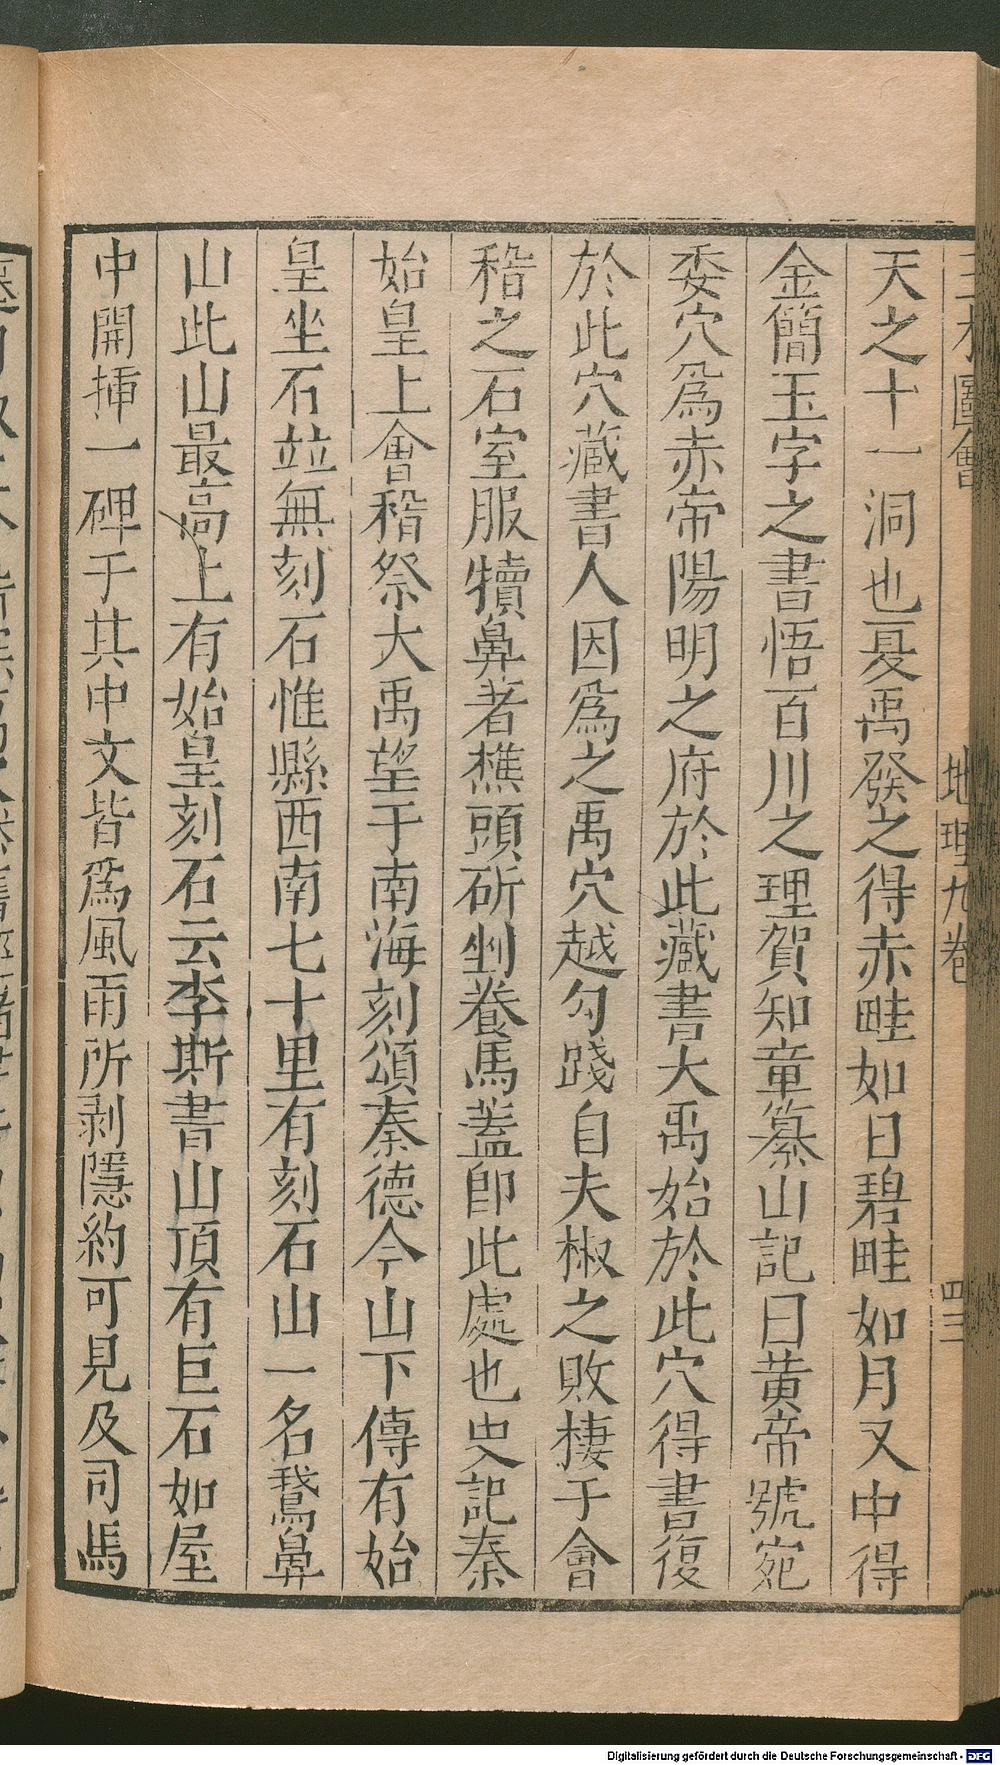 三才圖會 地理九卷 四三
天之十一洞也夏禹發之得赤畦如日碧畦如月又中得
金簡玉字之書悟百川之理賀知章纂山記曰黃帝號宛
委穴爲赤帝陽明之府於此藏書大禹始於此穴得書復
於此穴藏書人因爲之禹穴越勾踐自夫椒之敗棲于會
稽之石室服犢鼻著樵頭斫剉養馬蓋卽此處也史記秦
始皇上會稽祭大禹望于南海刻頌秦德今山下傳有始
皇坐石竝無刻石惟縣西南七十里有刻石山一名鵞鼻
山此山最高上有始皇刻石云李斯書山頂有巨石如屋
中開揷一碑于其中文皆爲風雨所剥隱約可見及司馬
Digitalisierung gefördert durch die Deutsche Forschungsgemeinschaft - DFG